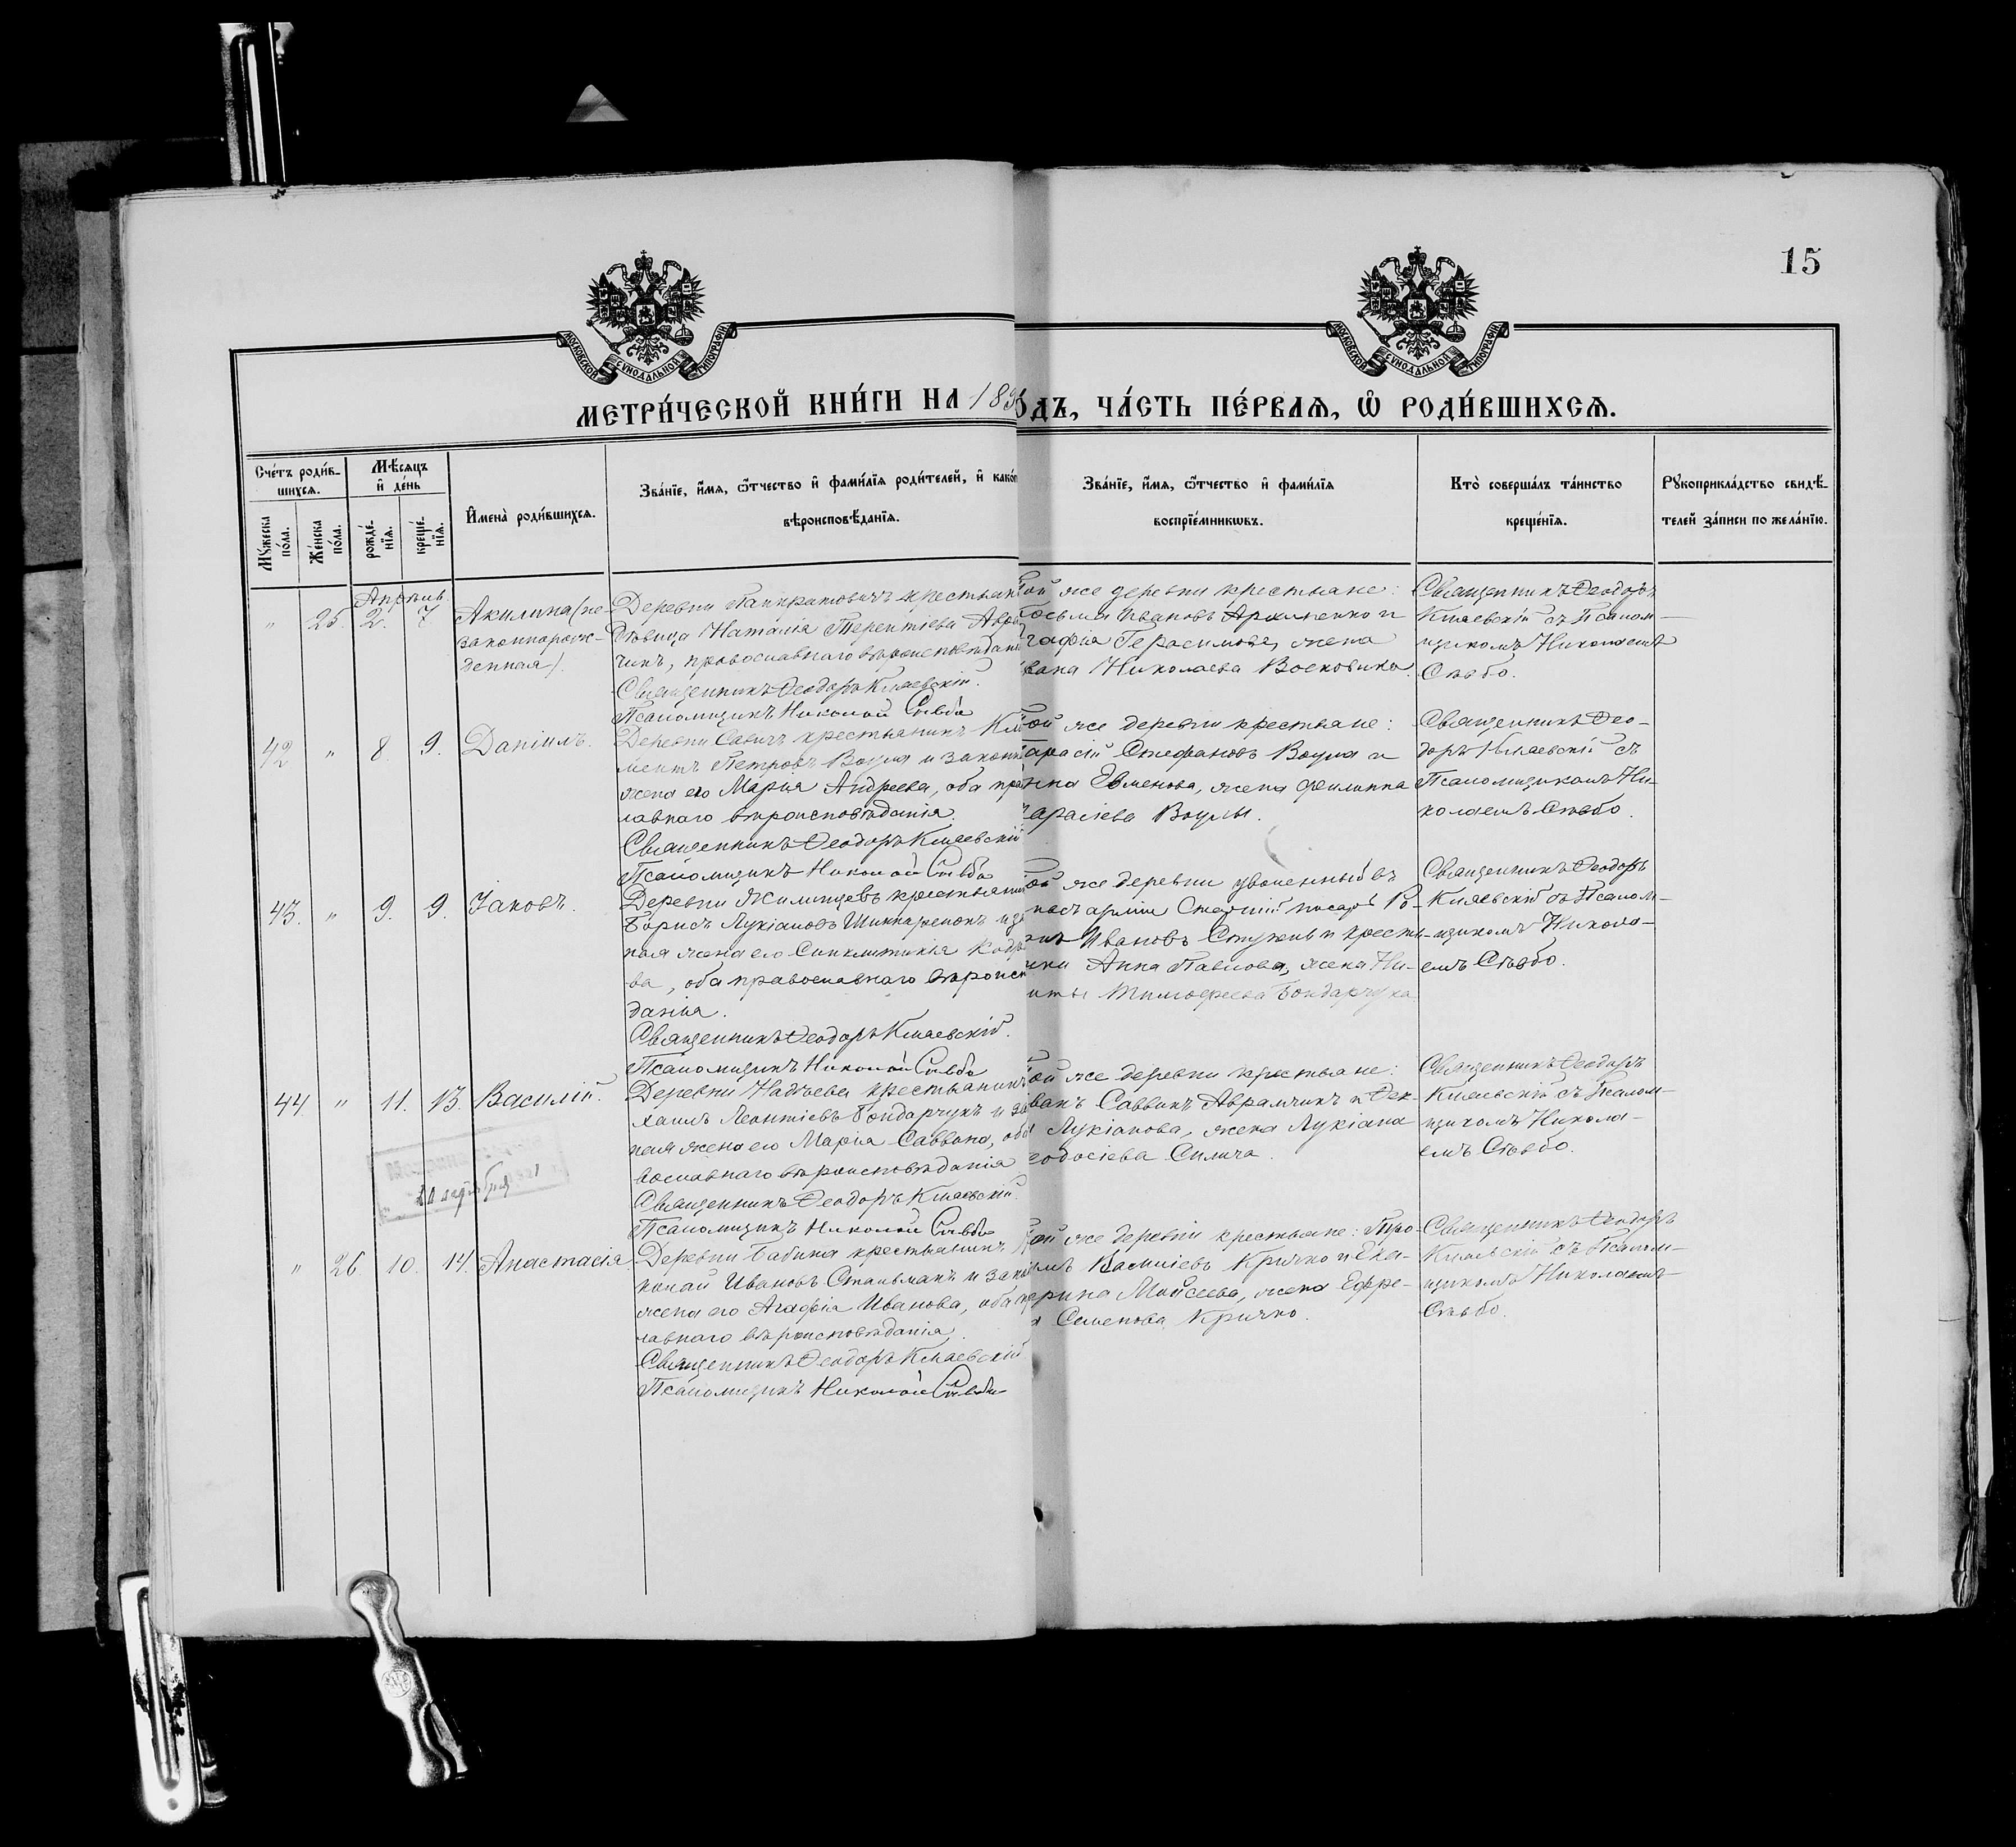 15
МОСКОВСКОЙ СУНОДАЛЬНОЙ ТИПОГРАФІИ
МОСКОВСКОЙ СУНОДАЛЬНОЙ ТИПОГРАФІИ
МЕТРИ́ЧЕСКОЙ КНИ́ГИ НА 189
ОДЪ, ЧА́СТЬ ПЕ́РВАЯ, Ѡ РОДИ́ВШИХСЯ.
Сче́тъ роди́в-
шихся.
Мꙋжеска по́ла.
Же́нска по́ла.
Мѣ́сяцъ
и҆ де́нь
рожде́-
нїя.
креще́-
нїя.
И҆мена̀ роди́вшихся.
Зва́нїе, и҆́мя, ѻ҆́тчество и҆ фами́лїя роди́телей, и҆ како́
вѣроисповѣ́данїя.
Зва́нїе, и҆́мя, ѻ҆́тчество и҆ фами́лїя
воспрїе́мникѡвъ.
Кто̀ соверша́лъ та́инство
креще́нїя.
Рꙋкоприкла́дство свидѣ́-
телей за́писи по жела́нїю.
Апрѣль
" 25. 2. 7
Акилина (не-
законнорож-
денная).
Деревни Панкратовичъ крестьян
Дѣвица Наталія Терентіева Авра
чикъ, православнаго вѣроисповѣдані
Священникъ Ѳеодоръ Кмаевскій.
Псаломщикъ Николай Сѣьбо
ой же деревни крестьяне:
осьма Ивановъ и
гафія Герасимова, жена
вана Николаева
Священникъ Ѳеодоръ
Кмаевскій съ Псалом-
щикомъ Николаемъ
Сѣьбо.
42 " 8 9. Даніилъ.
Деревни Савичъ крестьянинъ Кли
ментъ Петровъ Воуля и законн
жена его Марія Андреева, оба пра
лавнаго вѣроисповѣданія.
Священникъ Ѳеодоръ Кмаевскій
Псаломщикъ Николай Сѣьбо
ой же деревни крестьяне:
арасій Стефановъ Воуля и
нна Евменова, жена Филиппа
арасіева Воулы.
Священникъ Ѳео-
доръ Кмаевскій съ
Псаломщикомъ Ни-
колаемъ Сѣьбо.
43. " 9. 9. Іаковъ.
Деревни Жилинцевъ крестьянин
Борисъ Лукіановъ и за
ная жена его Синклитикія
ва, оба православнаго вѣроисп
данія.
Священникъ Ѳеодоръ Кмаевскій.
Псаломщикъ Николай Сѣьбо
ой же деревни уволенный въ
пасъ арміи Старшій писарь
Ивановъ и кресть-
нка Анна Павлова, жена Ни-
иты Тимофеева Бондарчука
Священникъ Ѳеодоръ
Кмаевскій съ Псалом-
щикомъ Никола-
емъ Сѣьбо.
44 " 11. 13. Василій.
Деревни крестьянинъ
хаилъ Леонтіевъ Бондарчукъ и за
ная жена его Марія Саввина, оба
вославнаго вѣроисповѣданія
Священникъ Ѳеодоръ Кмаевскій.
Псаломщикъ Николай Сѣьбо
ой же деревни крестьяне:
ванъ Саввинъ Аврамчикъ и Ѳек-
Лукіанова, жена Лукіана
еодосіева Силича.
Священникъ Ѳеодоръ
Кмаевскій съ Псалом-
щикомъ Никола-
емъ Сѣьбо.
" 26 10. 14. Анастасія.
Деревни Бабина крестьянинъ
колай Ивановъ Стальмакъ и зако
жена его Агафія Иванова, оба пр
лавнаго вѣроисповѣданія.
Священникъ Ѳеодоръ Кмаевскій
Псаломщикъ Николай Сѣьбо
ой же деревни крестьяне: Тро-
имъ Василіевъ Кричко и Ека-
ерина Моисеева, жена Ефре-
Семенова Кричко.
Священникъ Ѳеодоръ
Кмаевскій съ Псалом-
щикомъ Николаемъ
Сѣьбо.